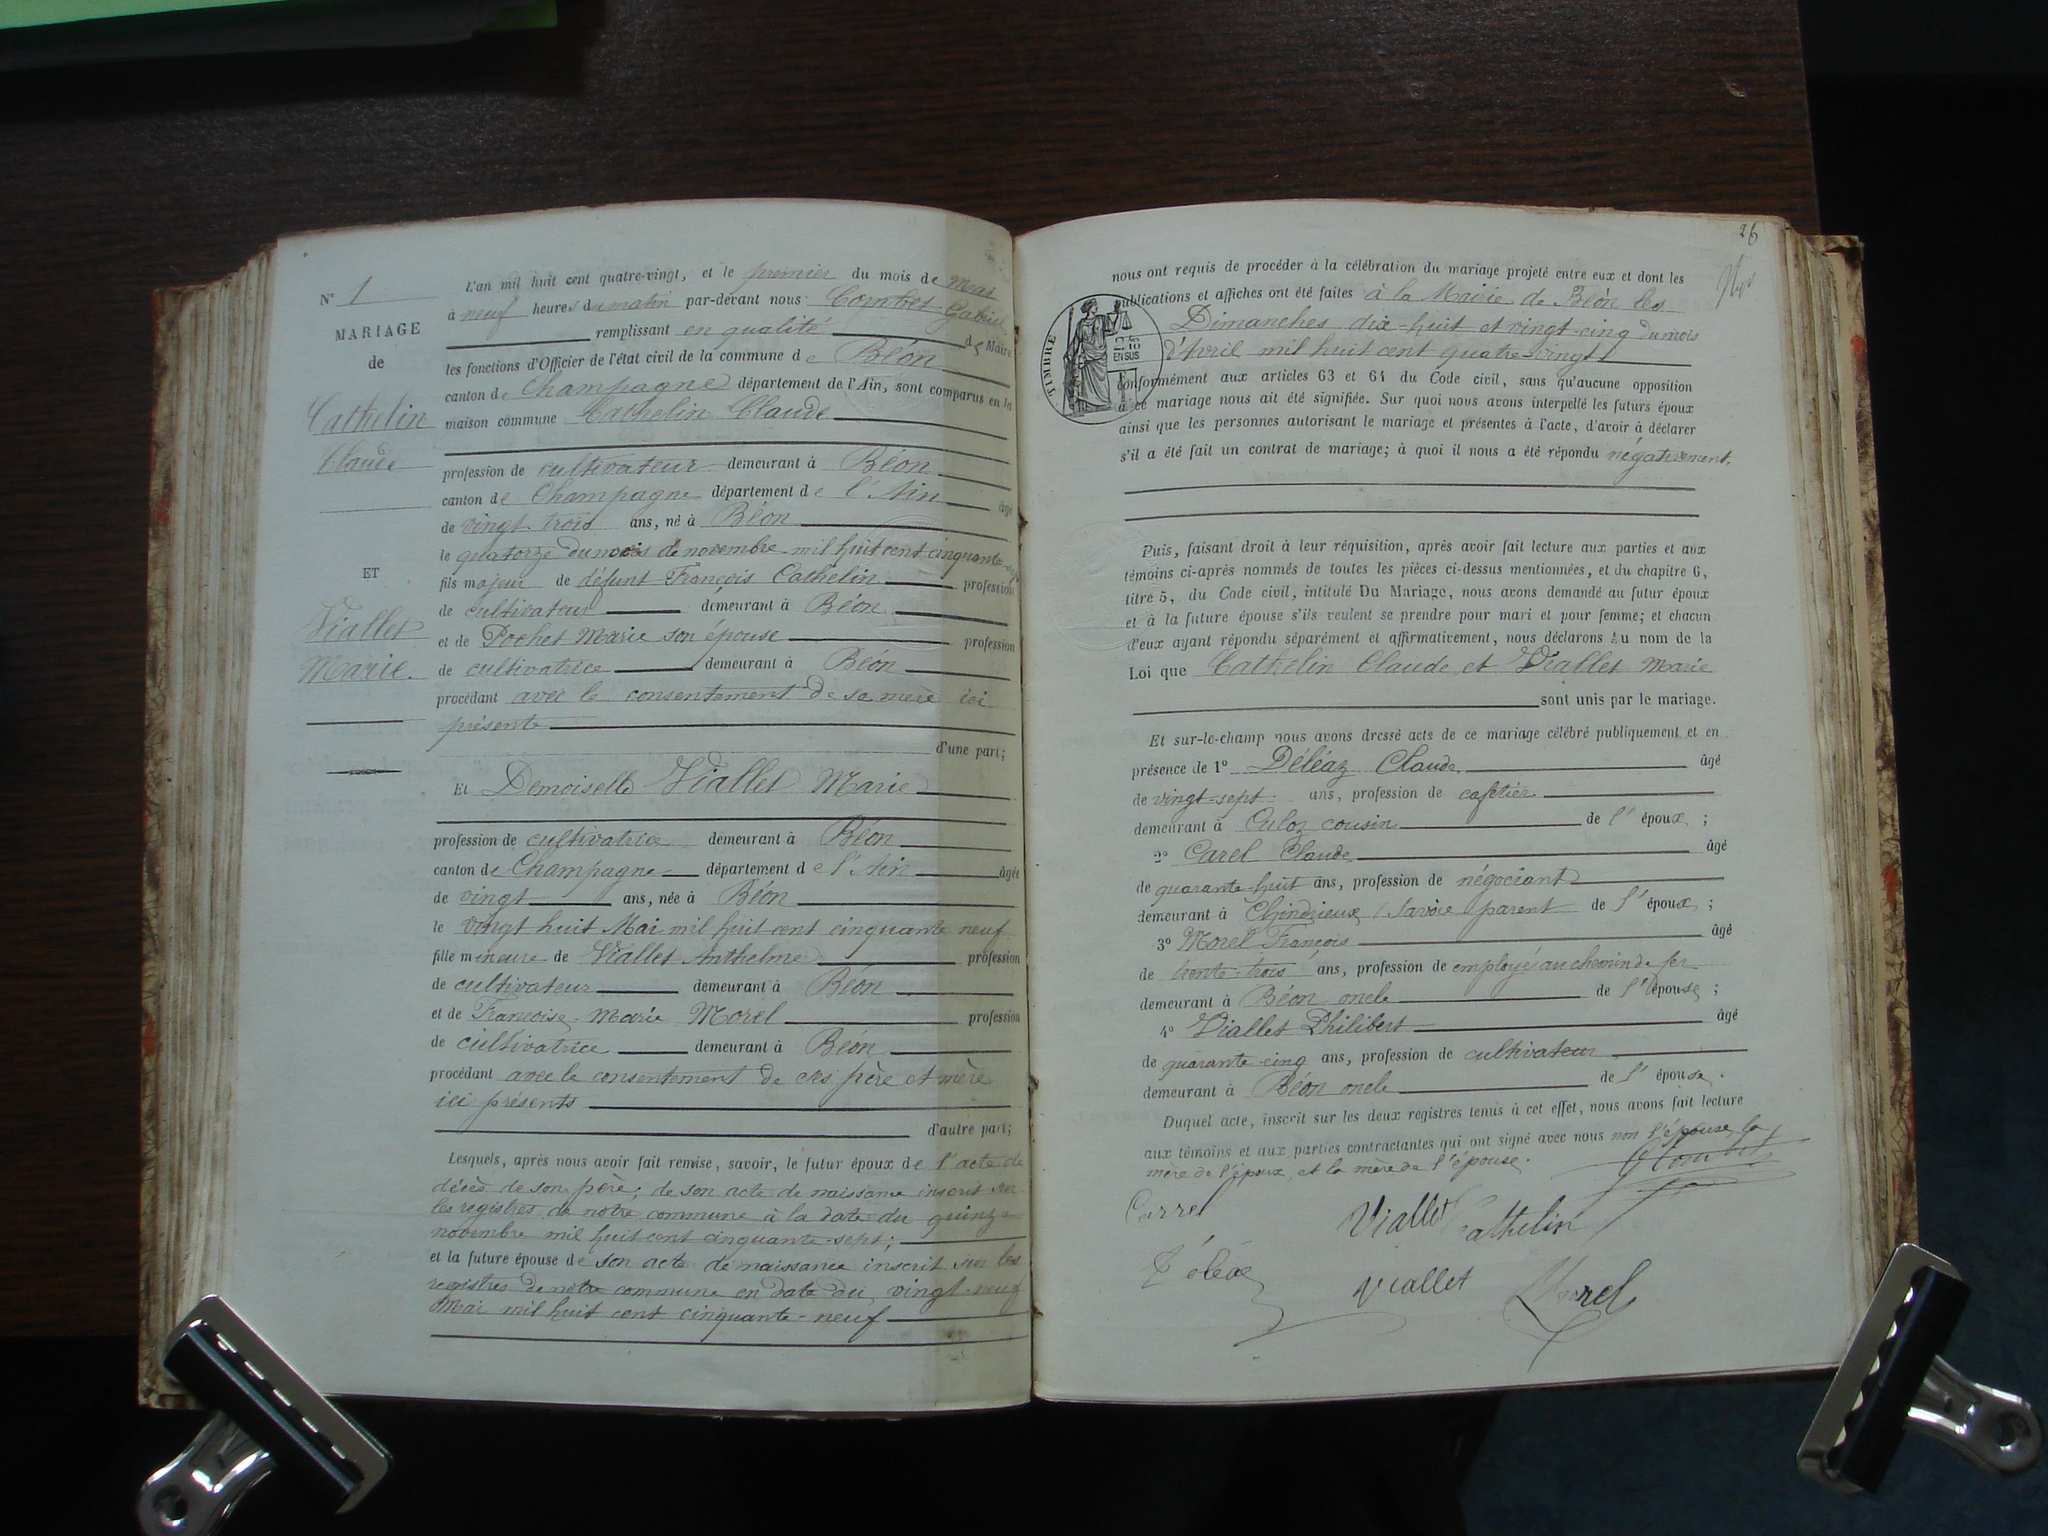 N° 1
MARIAGE
de
Cathelin
Claude
ET
Viallet
Marie.
L'an mil huit cent quatre-vingt, et le premier du mois de Mai
à neuf heures du matin par-devant nous Combet Gabriel
remplissant en qualité de Maire
les fonctions d'Officier de l'état civil de la commune de Béon
canton de Champagne département de l'Ain, sont comparus en la
maison commune Cathelin Claude
profession de cultivateur demeurant à Béon
canton de Champagne département de l'Ain âgé
de vingt trois ans, né à Béon
le quatorze du mois de novembre mil huit cent cinquante
fils majeur de défunt François Cathelin profession
de cultivateur demeurant à Béon
et de Pochet Marie son épouse profession
de cultivatrice demeurant à Béon
procédant avec le consentement de sa mère ici
présente
d'une part;
Et Demoiselle Viallet Marie
profession de cultivatrice demeurant à Béon
canton de Champagne département de l'Ain âgée
de vingt ans, née à Béon
le vingt huit Mai mil huit cent cinquante neuf
fille mineure de Viallet Anthelme profession
de cultivateur demeurant à Béon
et de Françoise Marie Morel profession
de cultivatrice demeurant à Béon
procédant avec le consentement de ses père et mère
ici présents
d'autre part;
Lesquels, après nous avoir fait remise, savoir, le futur époux de l'acte de
décès de son père; de son acte de naissance inscrit sur
les registres de notre commune à la date du quinze
novembre mil huit cent cinquante-sept;
et la future épouse de son acte de naissance inscrit sur les
registres de notre commune en date du vingt-neuf
Mai mil huit cent cinquante-neuf
26
nous ont requis de procéder à la célébration du mariage projeté entre eux et dont les
publications et affiches ont été faites à la Mairie de Béon les
Dimanches dix-huit et vingt-cinq du mois
d'Avril mil huit cent quatre-vingt
TIMBRE
EN SUS
conformément aux articles 63 et 64 du Code civil, sans qu'aucune opposition
à ce mariage nous ait été signifiée. Sur quoi nous avons interpellé les futurs époux
ainsi que les personnes autorisant le mariage et présentes à l'acte, d'avoir à déclarer
s'il a été fait un contrat de mariage; à quoi il nous a été répondu négativement.
Puis, faisant droit à leur réquisition, après avoir fait lecture aux parties et aux
témoins ci-après nommés de toutes les pièces ci-dessus mentionnées, et du chapitre 6,
titre 5, du Code civil, intitulé Du Mariage, nous avons demandé au futur époux
et à la future épouse s'ils veulent se prendre pour mari et pour femme; et chacun
d'eux ayant répondu séparément et affirmativement, nous déclarons au nom de la
Loi que Cathelin Claude et Viallet Marie
sont unis par le mariage.
Et sur-le-champ nous avons dressé acte de ce mariage célébré publiquement et en
présence de 1° Déléaz Claude âgé
de vingt-sept ans, profession de cafetier
demeurant à Culoz cousin de l'époux;
2° Carel Claude âgé
de quarante-huit ans, profession de négociant
demeurant à Chindrieux Savoie parent de l'époux;
3° Morel François âgé
de trente-trois ans, profession de employé au chemin de fer
demeurant à Béon oncle de l'épouse;
4° Viallet Philibert âgé
de quarante-cinq ans, profession de cultivateur
demeurant à Béon oncle de l'épouse.
Duquel acte, inscrit sur les deux registres tenus à cet effet, nous avons fait lecture
aux témoins et aux parties contractantes qui ont signé avec nous non l'épouse, la
mère de l'époux, et la mère de l'épouse.
Combet
Carrel
Viallet Cathelin
Déléaz
Viallet
Morel